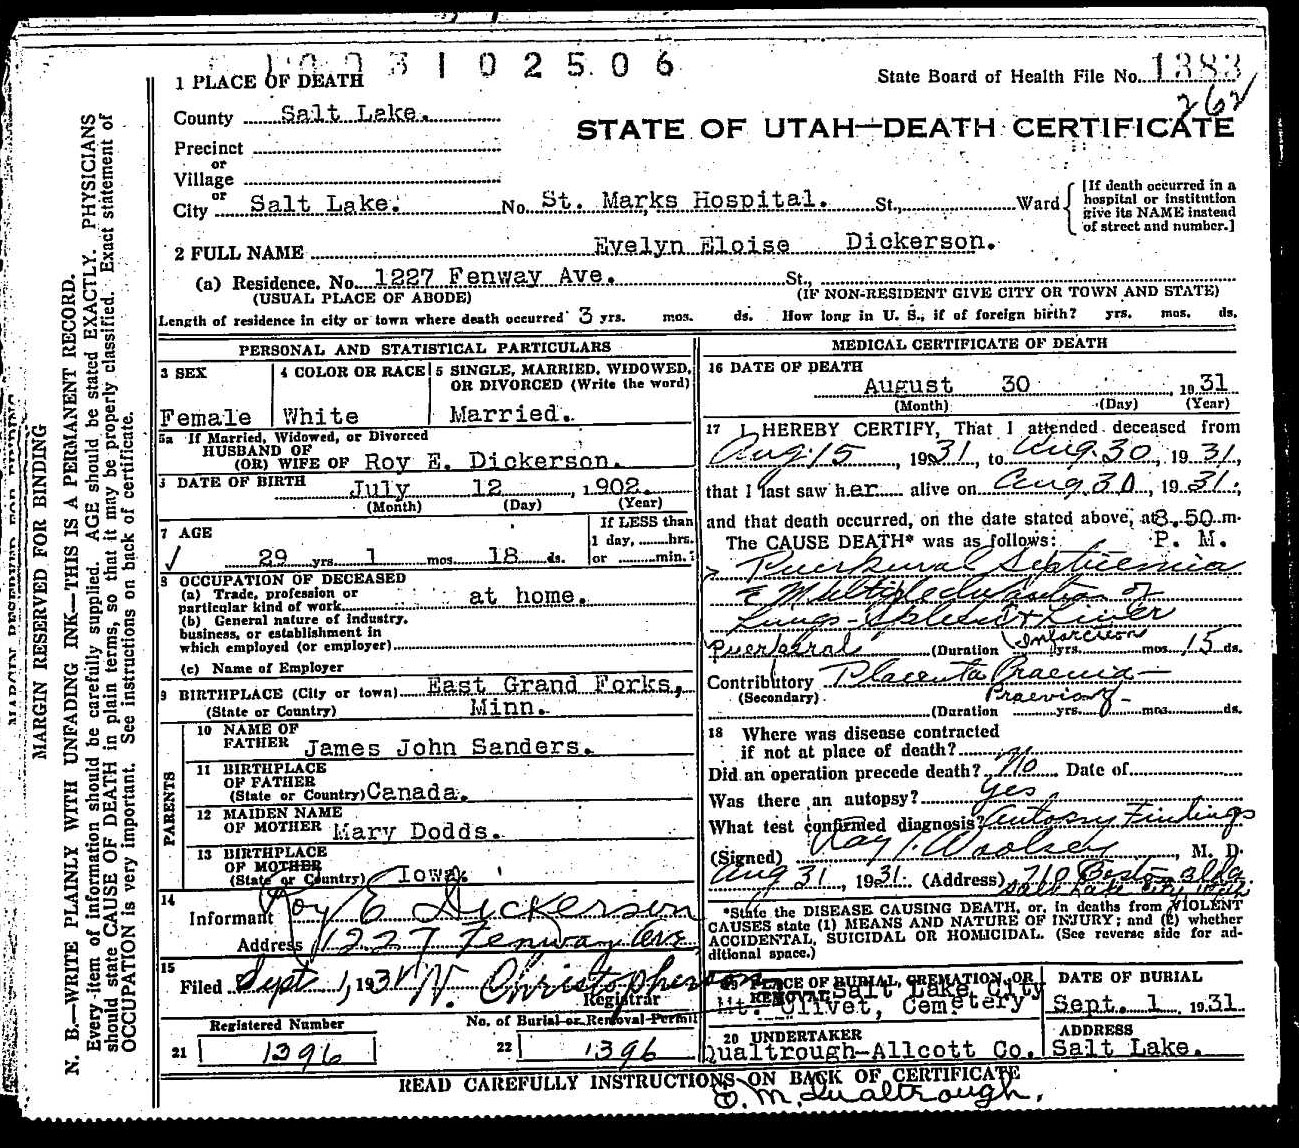 1003102506
1 PLACE OF DEATH
State Board of Health File No. 1383
262
County Salt Lake.
STATE OF UTAH—DEATH CERTIFICATE
Precinct
or
Village
or
City Salt Lake. No. St. Marks Hospital. St., Ward
[If death occurred in a
hospital or institution
give its NAME instead
of street and number.]
2 FULL NAME Evelyn Eloise Dickerson.
(a) Residence. No. 1227 Fenway Ave. St.,
(USUAL PLACE OF ABODE) (IF NON-RESIDENT GIVE CITY OR TOWN AND STATE)
Length of residence in city or town where death occurred 3 yrs. mos. ds. How long in U. S., if of foreign birth? yrs. mos. ds.
PERSONAL AND STATISTICAL PARTICULARS
3 SEX
Female
4 COLOR OR RACE
White
5 SINGLE, MARRIED, WIDOWED,
OR DIVORCED (Write the word)
Married.
5a If Married, Widowed, or Divorced
HUSBAND OF
(OR) WIFE OF Roy E. Dickerson.
6 DATE OF BIRTH July 12, 1902.
(Month) (Day) (Year)
7 AGE
29 yrs. 1 mos. 18 ds.
If LESS than
1 day, hrs.
or min.
8 OCCUPATION OF DECEASED
(a) Trade, profession or
particular kind of work at home.
(b) General nature of industry,
business, or establishment in
which employed (or employer)
(c) Name of Employer
9 BIRTHPLACE (City or town) East Grand Forks,
(State or Country) Minn.
PARENTS
10 NAME OF
FATHER James John Sanders.
11 BIRTHPLACE
OF FATHER
(State or Country) Canada.
12 MAIDEN NAME
OF MOTHER Mary Dodds.
13 BIRTHPLACE
OF MOTHER
(State or Country) Iowa.
14
Informant Roy E Dickerson
Address 1227 Fenway Ave
15
Filed Sept 1, 1931 N. Christopherson
Registrar
Registered Number
21 1396
No. of Burial or Removal Permit
22 1396
MEDICAL CERTIFICATE OF DEATH
16 DATE OF DEATH
August 30, 1931
(Month) (Day) (Year)
17 I HEREBY CERTIFY, That I attended deceased from
Aug. 15, 1931, to Aug. 30, 1931,
that I last saw her alive on Aug. 30, 1931,
and that death occurred, on the date stated above, at 8.50 m.
The CAUSE DEATH* was as follows: P. M.
Puerperal Septicemia
Lungs - Spleen & Liver
Infarction
Puerperal (Duration yrs. mos. 15 ds.
Contributory Placenta Praevia
(Secondary)
(Duration yrs. mos. ds.
18 Where was disease contracted
if not at place of death?
Did an operation precede death? No Date of
Was there an autopsy? Yes
What test confirmed diagnosis? Autopsy Findings
(Signed) Ray T. Woolsey, M. D.
Aug 31, 1931. (Address) 710 Boston Bldg
Salt Lake City Utah
*State the DISEASE CAUSING DEATH, or, in deaths from VIOLENT
CAUSES state (1) MEANS AND NATURE OF INJURY; and (2) whether
ACCIDENTAL, SUICIDAL OR HOMICIDAL. (See reverse side for ad-
ditional space.)
19 PLACE OF BURIAL, CREMATION, OR
REMOVAL Salt Lake City
Mt. Olivet, Cemetery
DATE OF BURIAL
Sept. 1 1931.
20 UNDERTAKER
Qualtrough-Allcott Co.
ADDRESS
Salt Lake.
READ CAREFULLY INSTRUCTIONS ON BACK OF CERTIFICATE
O. M. Qualtrough.
MARGIN RESERVED FOR BINDING
N. B.—WRITE PLAINLY WITH UNFADING INK—THIS IS A PERMANENT RECORD.
Every item of information should be carefully supplied. AGE should be stated EXACTLY. PHYSICIANS
should state CAUSE OF DEATH in plain terms, so that it may be properly classified. Exact statement of
OCCUPATION is very important. See instructions on back of certificate.